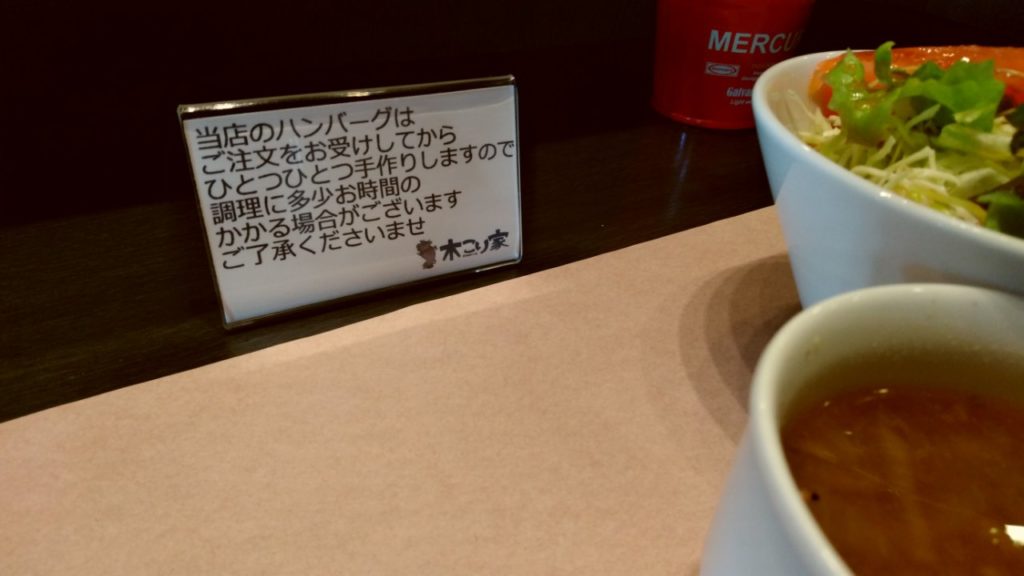 当店のハンバーグは
ご注文をお受けしてから
ひとつひとつ手作りしますので
調理に多少お時間の
かかる場合がございます
ご了承くださいませ
木こり家
MERCU